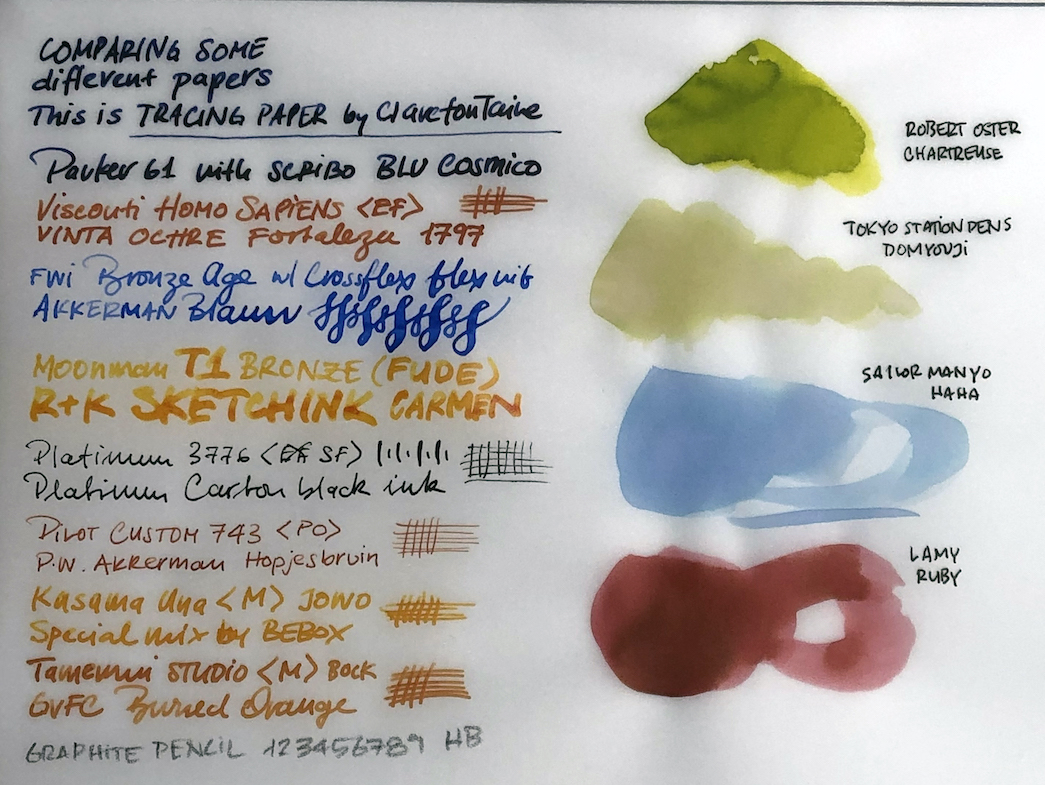 COMPARING SOME
different papers
This is TRACING PAPER by Clairefontaine
Parker 61 with SCRIBO BLU COSMICO
Visconti HOMO SAPIENS <EF>
VINTA OCHRE Fortaleza 1797
FWI Bronze Age w/ Crossflex flex nib
AKKERMAN Blauw
Moonman T1 BRONZE (FUDE)
R+K SKETCHINK CARMEN
Platinum 3776 <SF>
Platinum Carbon black ink
PILOT CUSTOM 743 <PO>
P.W. AKKERMAN Hopjesbruin
Kasama Una <M> JOWO
Special mix by BEBOX
Tamenuri STUDIO <M> BOCK
GVFC Burned Orange
GRAPHITE PENCIL 123456789 HB
ROBERT OSTER
CHARTREUSE
TOKYO STATION PENS
DOMYOUJI
SAILOR MANYO
HAHA
LAMY
RUBY